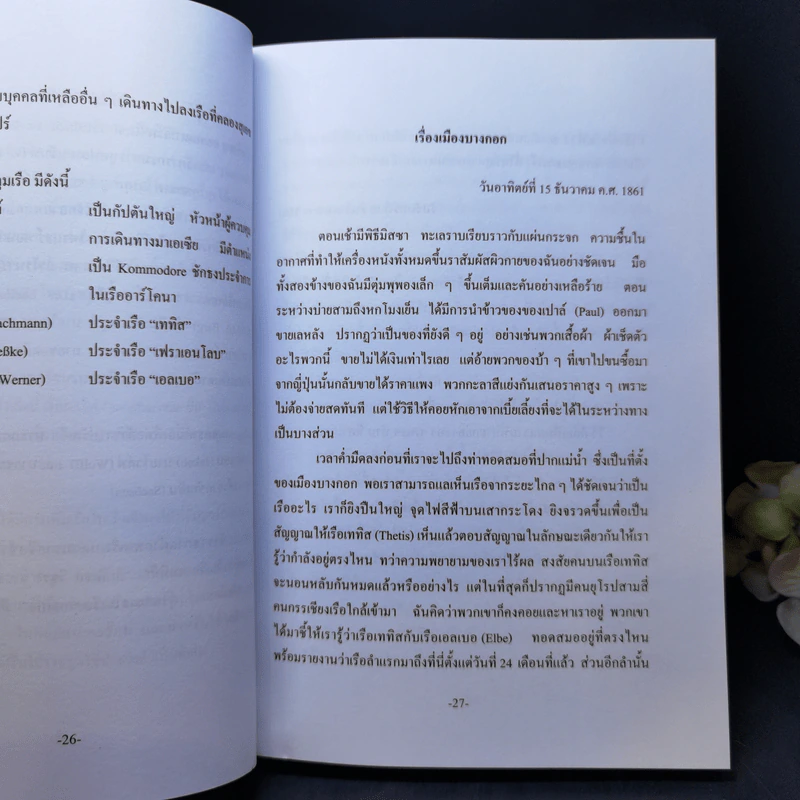 บุคคลที่เหลืออื่น ๆ เดินทางไปลงเรือที่คลอง
มเรือ มีดังนี้
เป็นกัปตันใหญ่ หัวหน้าผู้ควบคุม
การเดินทางมาเอเซีย มีตำแหน่ง
เป็น Kommodore ชักธงประจำการ
ในเรืออาร์โคนา
achmann) ประจำเรือ “เททิส”
eßke) ประจำเรือ “เฟราเอนโลบ”
Werner) ประจำเรือ “เอลเบอ”
-26-
เรื่องเมืองบางกอก
วันอาทิตย์ที่ 15 ธันวาคม ค.ศ. 1861
ตอนเช้ามีพิธีมิสซา ทะเลราบเรียบราวกับแผ่นกระจก ความชื้นใน
อากาศที่ทำให้เครื่องหนังทั้งหมดขึ้นราสัมผัสผิวกายของฉันอย่างชัดเจน มือ
ทั้งสองข้างของฉันมีตุ่มพุพองเล็ก ๆ ขึ้นเต็มและคันอย่างเหลือร้าย ตอน
ระหว่างบ่ายสามถึงหกโมงเย็น ได้มีการนำข้าวของของเปาล์ (Paul) ออกมา
ขายเลหลัง ปรากฏว่าเป็นของที่ยังดี ๆ อยู่ อย่างเช่นพวกเสื้อผ้า ผ้าเช็ดตัว
อะไรพวกนี้ ขายไม่ได้เงินเท่าไรเลย แต่อ้ายพวกของบ้า ๆ ที่เขาไปขนซื้อมา
จากญี่ปุ่นนั้นกลับขายได้ราคาแพง พวกกะลาสีแย่งกันเสนอราคาสูง ๆ เพราะ
ไม่ต้องจ่ายสดทันที แต่ใช้วิธีให้คอยหักเอาจากเบี้ยเลี้ยงที่จะได้ในระหว่างทาง
เป็นบางส่วน
เวลาค่ำมืดลงก่อนที่เราจะไปถึงท่าทอดสมอที่ปากแม่น้ำ ซึ่งเป็นที่ตั้ง
ของเมืองบางกอก พอเราสามารถแลเห็นเรือจากระยะไกล ๆ ได้ชัดเจนว่าเป็น
เรืออะไร เราก็ยิงปืนใหญ่ จุดไฟสีฟ้าบนเสากระโดง ยิงจรวดขึ้นเพื่อเป็น
สัญญาณให้เรือเททิส (Thetis) เห็นแล้วตอบสัญญาณในลักษณะเดียวกันให้เรา
รู้ว่ากำลังอยู่ตรงไหน ทว่าความพยายามของเราไร้ผล สงสัยคนบนเรือเททิส
จะนอนหลับกันหมดแล้วหรืออย่างไร แต่ในที่สุดก็ปรากฏมีคนยุโรปสามสี่
คนกรรเชียงเรือใกล้เข้ามา ฉันคิดว่าพวกเขาก็คงคอยและหาเราอยู่ พวกเขา
ได้มาชี้ให้เรารู้ว่าเรือเททิสกับเรือเอลเบอ (Elbe) ทอดสมออยู่ที่ตรงไหน
พร้อมรายงานว่าเรือลำแรกมาถึงที่นี่ตั้งแต่วันที่ 24 เดือนที่แล้ว ส่วนอีกลำนั้น
-27-